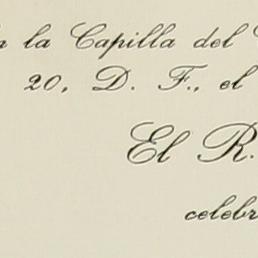 la Capilla del
20, D. F., el
El R.
celebr